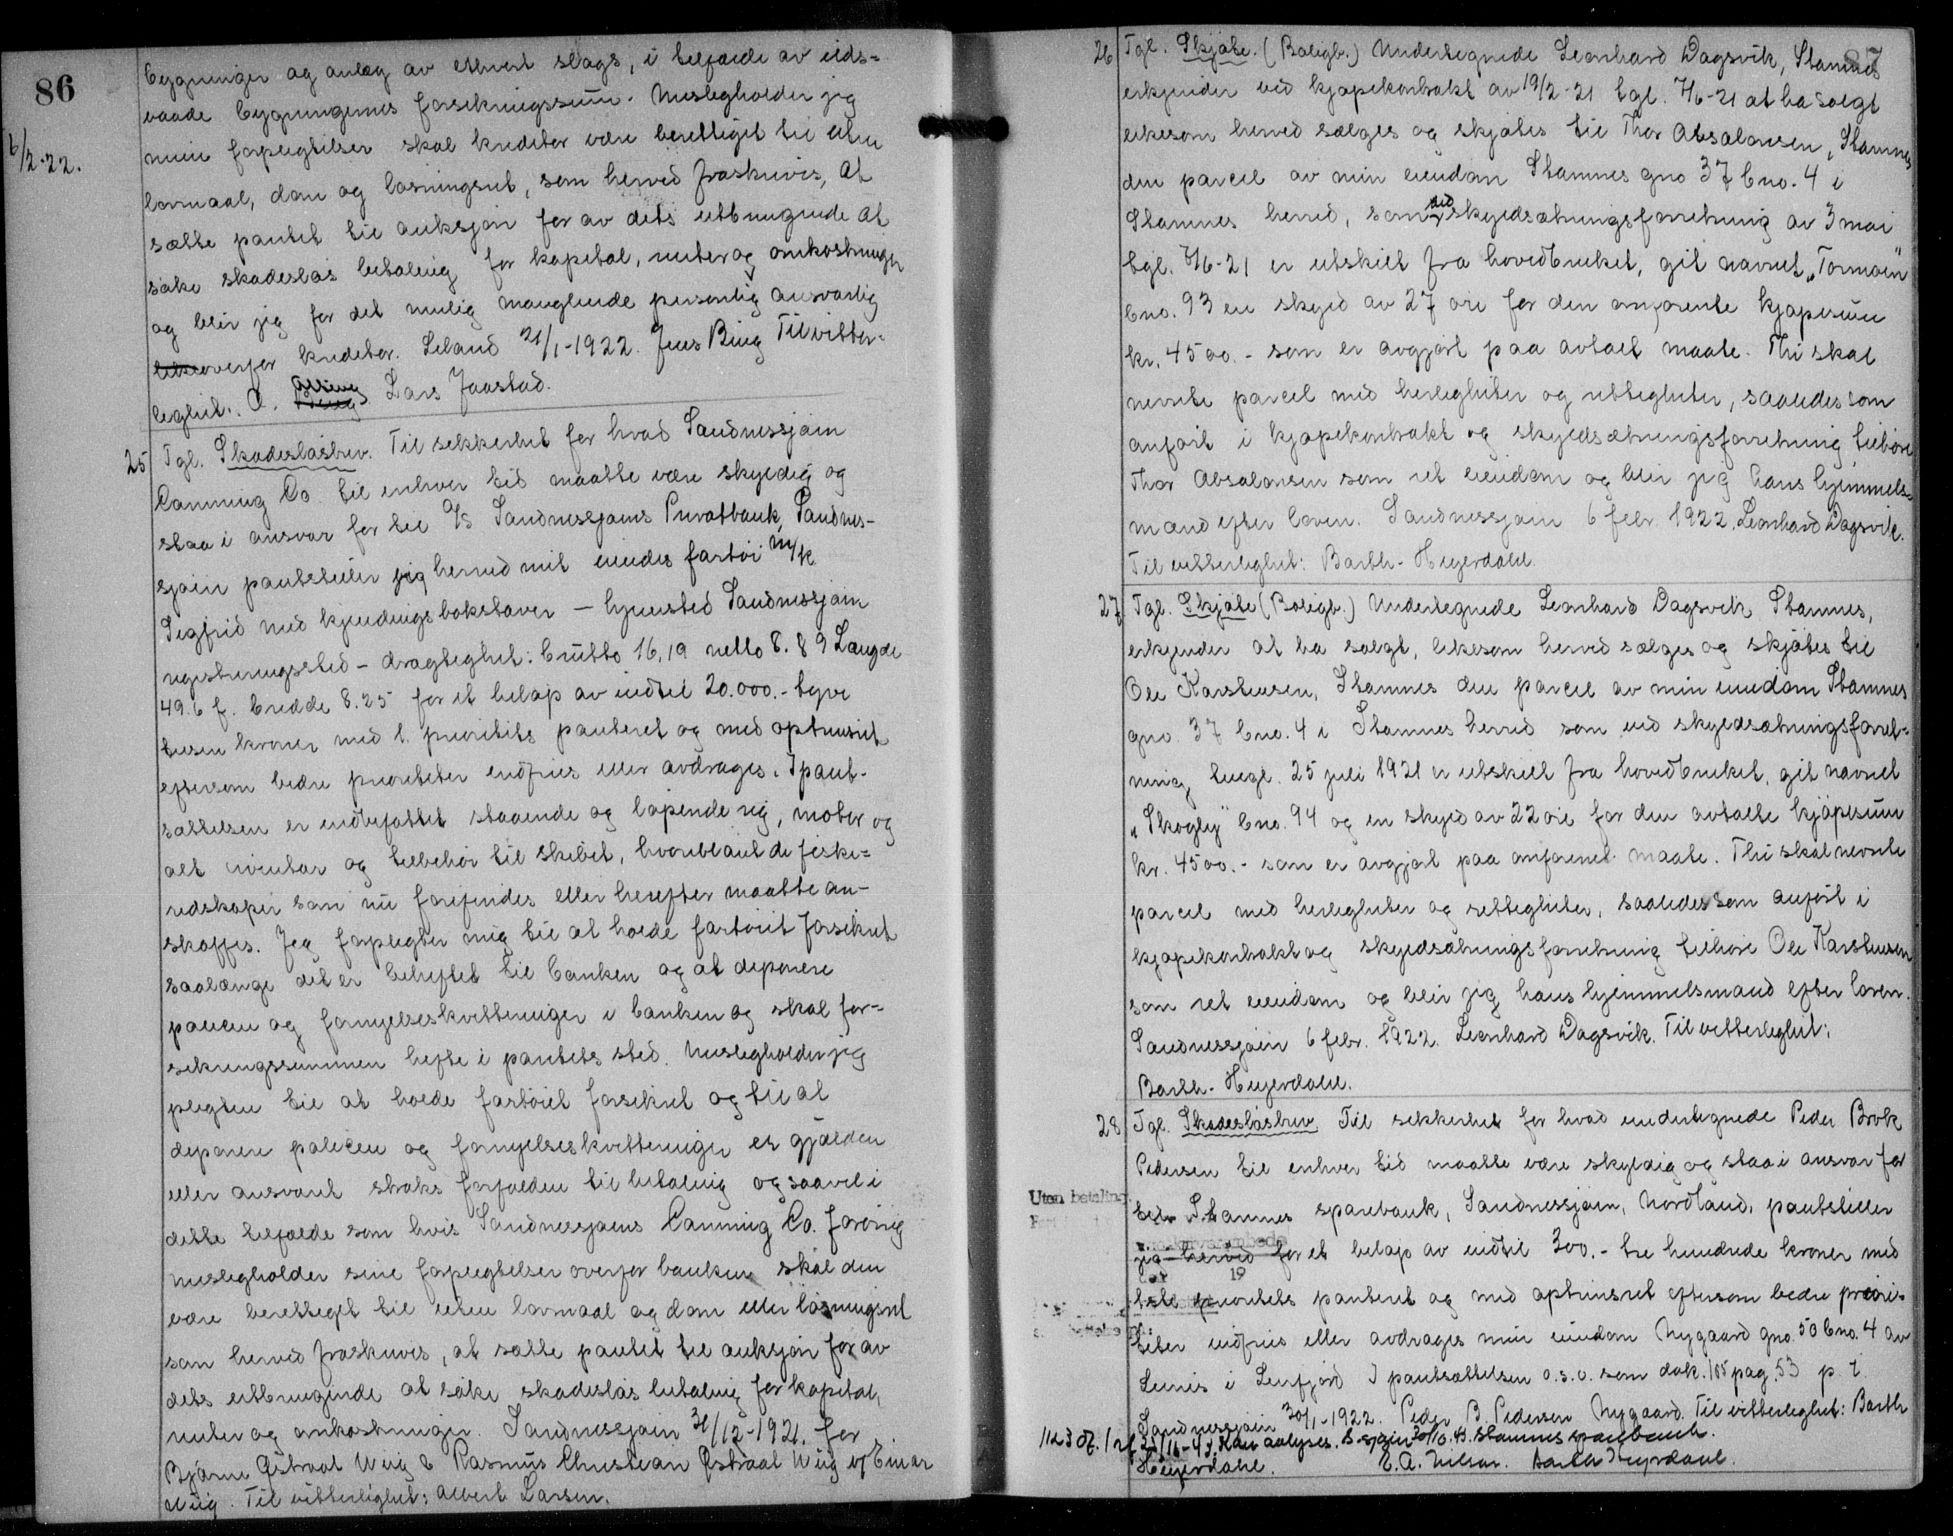 86
6/2-22.
bygninger og anlæg av ethvert slags, i tilfælde av ilds-
vaade bygningernes forsikringssum. Misligholder jeg
mine forpligtelser skal kreditor være berettiget til uten
lovmaal, dom og løsningsret, som herved fraskrives, at
sætte pantet til auksjon for av dets utbringende at
søke skadesløs betaling for kapital, renter og omkostninger
og blir jeg for det mulig manglende personlig ansvarlig
overfor kreditor. Leland 21/1-1922. Jens Bing Til vitter-
lighet: O. Lars Jaastad.
25 Tgl. Skadesløsbrev. Til sikkerhet for hvad Sandnessjøen
Canning Co. til enhver tid maatte være skyldig og
staa i ansvar for til A/S Sandnessjøens Privatbank, Sandnes-
sjøen pantstiller jeg herved mit eiendes fartøi m/k
Sigfrid med kjendingsbokstaver – hjemsted Sandnessjøen
registreringssted – drægtighet: brutto 16,19 netto 8.89 Længde
49.6 f. bredde 8.25 for et beløp av indtil 20.000.- tyve
tusen kroner med 1. prioritets panteret og med optrinsret
eftersom bedre prioriteter indfries eller avdrages. I pant-
sættelsen er indbefattet staaende og løpende rig, motor og
alt inventar og tilbehør til skibet, hvoriblandt de fiske-
redskaper som nu forefindes eller herefter maatte an-
skaffes. Jeg forpligter mig til at holde fartøiet forsikret
saalænge det er beheftet til banken og at deponere
policen og fornyelseskvitteringer i banken og skal for-
sikringssummen hefte i pantets sted. Misligholder jeg
pligten til at holde fartøiet forsikret og til at
deponere policen og fornyelseskvitteringer er gjælden
eller ansvaret straks forfalden til betaling og saavel i
dette tilfælde som hvis Sandnessjøens Canning Co. forøvrig
misligholder sine forpligtelser overfor banken skal den
være berettiget til uten lovmaal og dom eller løsningsret
som herved fraskrives, at sætte pantet til auksjon for av
dets utbringende at søke skadesløs betaling for kapital,
renter og omkostninger. Sandnessjøen 31/12-1921. for
Bjarne Østraat Wiig & Rasmus Christian Østraat Wiig Einar
Wiig. Til vitterlighet: Albert Larsen.
87
26 Tgl. Skjøte. (Boligb.) Undertegnede Leonhard Dagsvik, Stamnes
erkjender ved kjøpekontrakt av 19/2-21 tgl. 7/6-21 at ha solgt
likesom herved sælges og skjøtes til Thor Absalonsen, Stamnes
den parcel av min eiendom Stamnes gno 37 bno. 4 i
Stamnes herred, som ved skyldsætningsforretning av 3 mai
tgl. 7/6-21 er utskilt fra hovedbruket, git navnet „Tormoen"
bno. 93 en skyld av 27 øre for den omforente kjøpesum
kr. 4500.- som er avgjort paa avtalt maate. Thi skal
nevnte parcel med herligheter og rettigheter, saaledes som
anført i kjøpekontrakt og skyldsætningsforretning tilhøre
Thor Absalonsen som ret eiendom og blir jeg hans hjemmels-
mand efter loven. Sandnessjøen 6 febr. 1922. Leonhard Dagsvik.
Til vitterlighet: Barth-Heyerdahl.
27 Tgl. Skjøte (Boligb.) Undertegnede Leonhard Dagsvik Stamnes,
erkjender at ha solgt, likesom herved sælges og skjøtes til
Ole Karstensen, Stamnes den parcel av min eiendom Stamnes
gno. 37 bno. 4 i Stamnes herred som ved skyldsætningsforret-
ning, tingl. 25 juli 1921 er utskilt fra hovedbruket, git navnet
„Skogly" bno. 94 og en skyld av 22 øre for den avtalte kjøpesum
kr. 4500.- som er avgjort paa omforenet maate. Thi skal nevnte
parcel med herligheter og rettigheter, saaledes som anført i
kjøpekontrakt og skyldsætningsforretning tilhøre Ole Karstensen
som ret eiendom og blir jeg hans hjemmelsmand efter loven.
Sandnessjøen 6 febr. 1922. Leonhard Dagsvik. Til vitterlighet:
Barth-Heyerdahl.
28 Tgl. Skadesløsbrev Til sikkerhet for hvad undertegnede Peder Brok
Pedersen til enhver tid maatte være skyldig og staa i ansvar for
Uten betaling
til Stamnes sparebank, Sandnessjøen, Nordland, pantstiller
jeg herved for et beløp av indtil 300.- tre hundrede kroner med
19
1ste prioritets panteret og med optrinsret eftersom bedre priori-
teter indfries eller avdrages min eiendom Nygaard gno. 50 bno. 4 av
Leines i Leirfjord I pantsættelsen o.s.v. som dok. 105 pag. 53 p. t.
Sandnessjøen 30/1-1922. Peder B. Pedersen Nygaard. Til vitterlighet: Barth
Kan avlyses. S. sjøen 30/10.43. Stamnes sparebank.
Heyerdahl. E. A. Nilsen. Barth Heyerdahl.